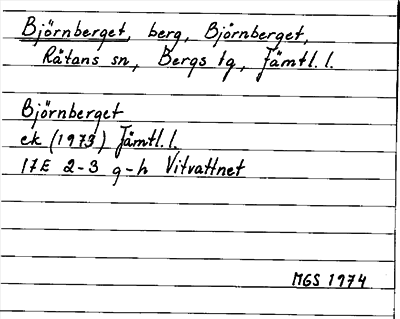 Björnberget, berg, Björnberget,
Rätans sn, Bergs tg, Jämtl. l.
Björnberget
ek (1973) Jämtl. l.
17E 2-3 g-h Vitvattnet
MGS 1974